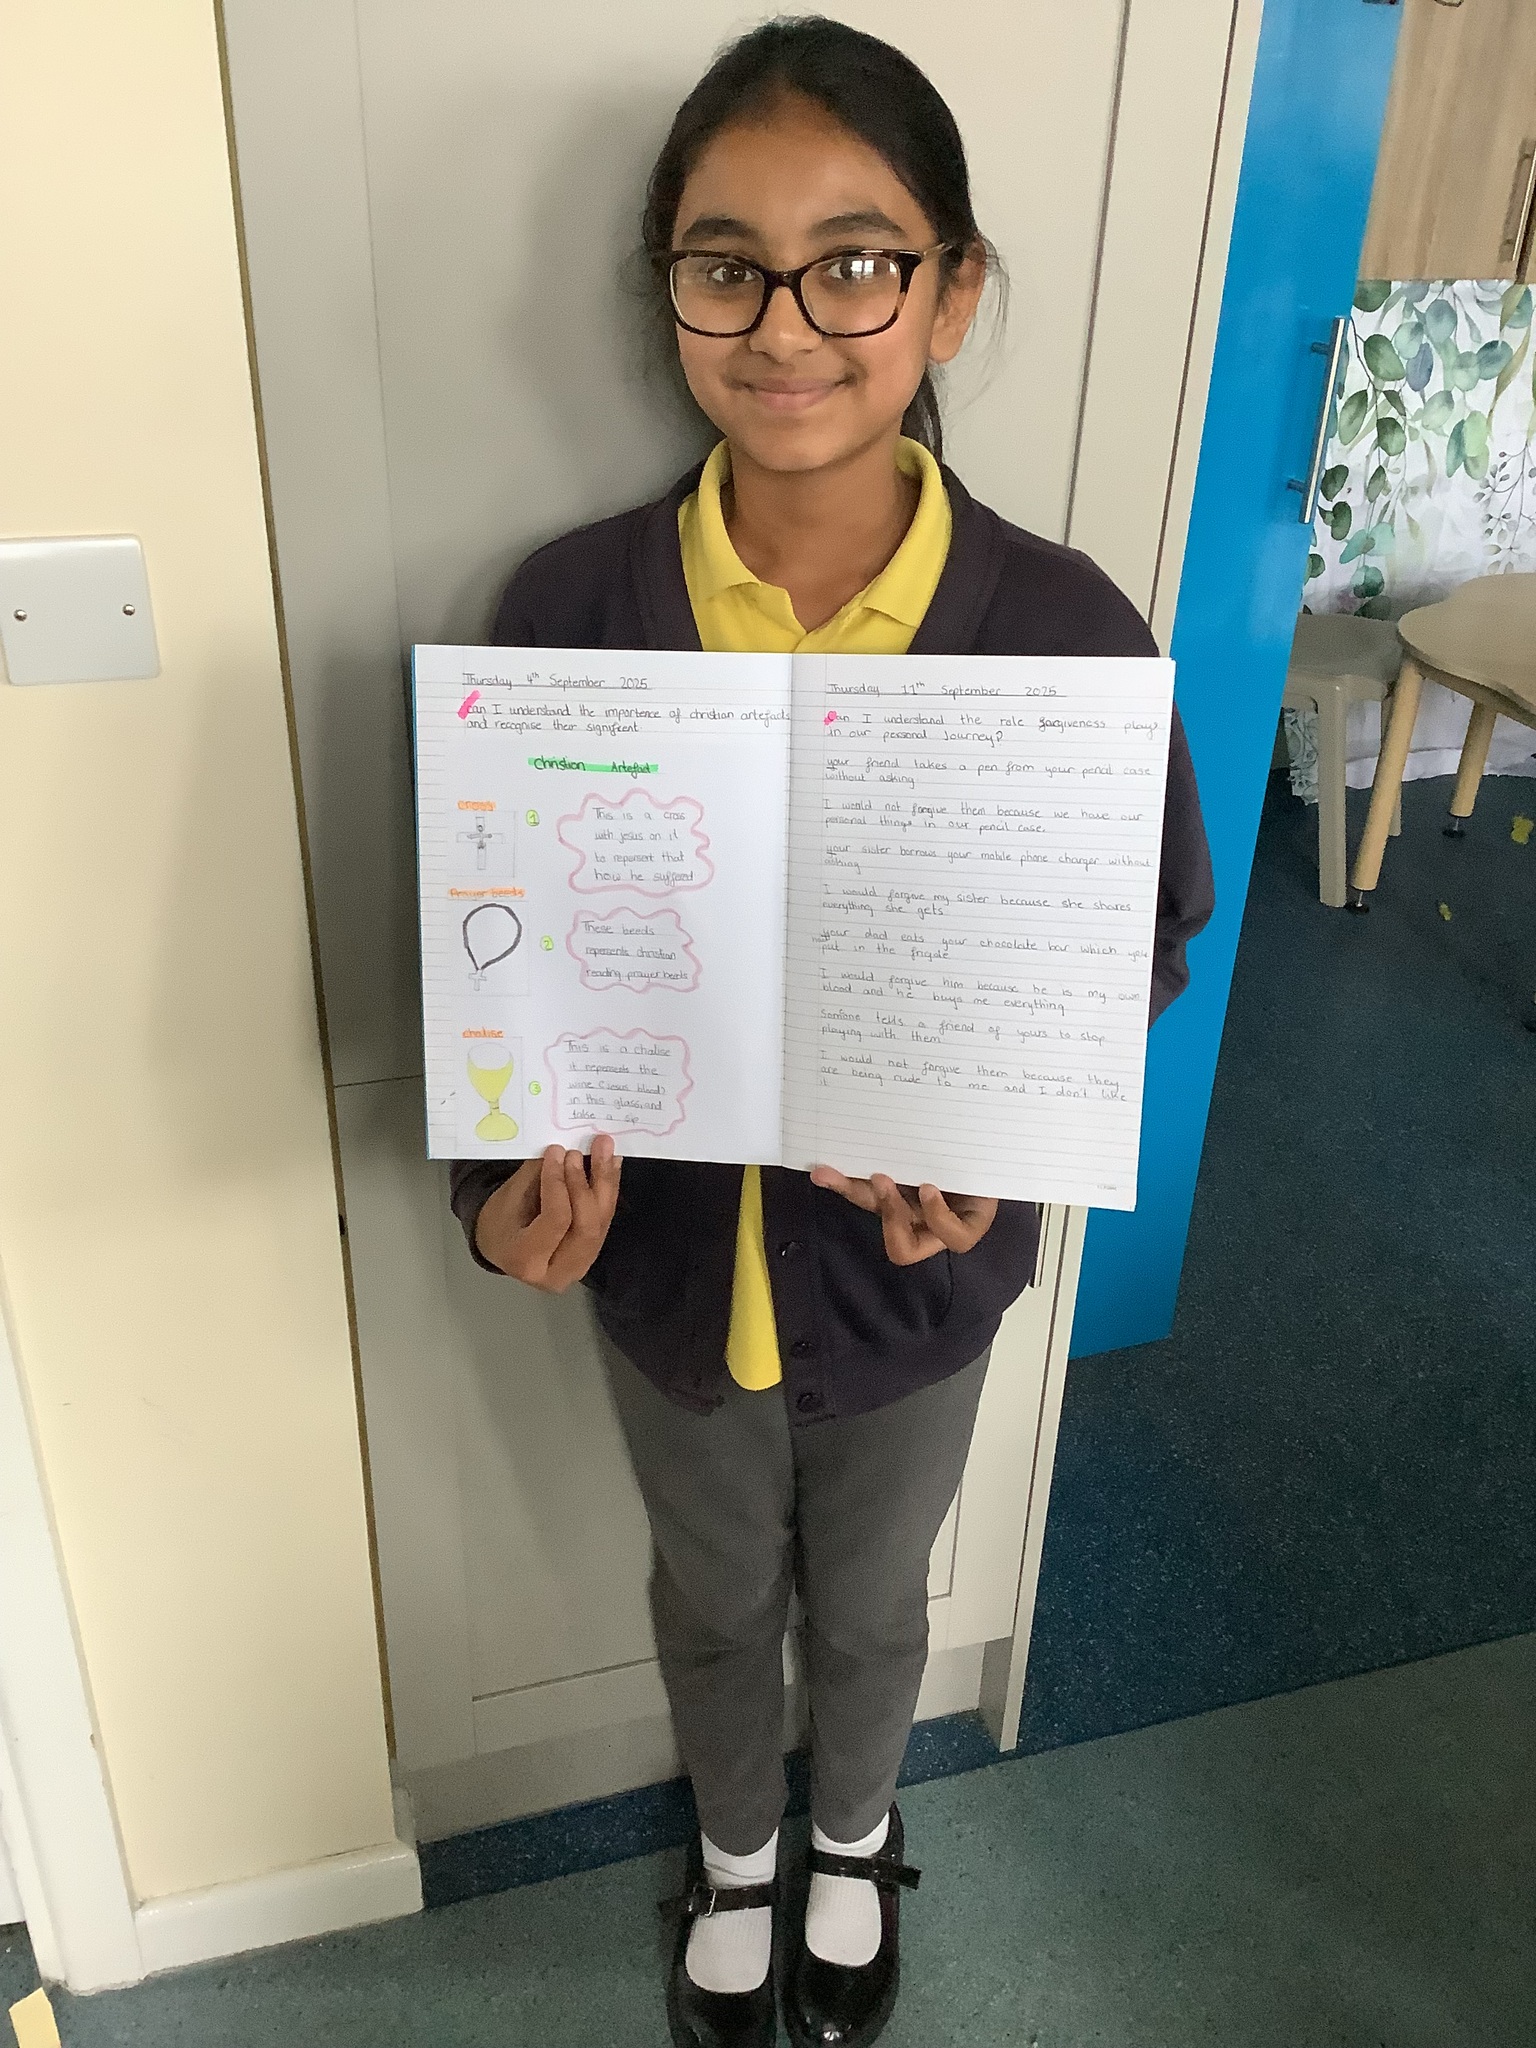 Thursday 4th September 2025
Can I understand the importence of christian artefacts
and recognise their signifrent
Christian Artefact
cross
1
This is a cross
with jesus on it
to repersent that
how he suffered
Prayer beeds
2
These beeds
repersents christian
reading prayer beeds
chalise
3
This is a chalise
it repersents the
wine (Jesus blood)
in this glass and
take a sip
Thursday 11th September 2025
Can I understand the role forgiveness plays
in our personal Journey?
your friend takes a pen from your pencil case
without asking
I would not forgive them because we have our
personal things in our pencil case.
your sister borrows your mobile phone charger without
asking
I would forgive my sister because she shares
everything she gets
your dad eats your chocolate bar which you
put in the frigde
I would forgive him because he is my own
blood and he buys me everything
Someone tells a friend of yours to stop
playing with them
I would not forgive them because they
are being rude to me and I don't like
it